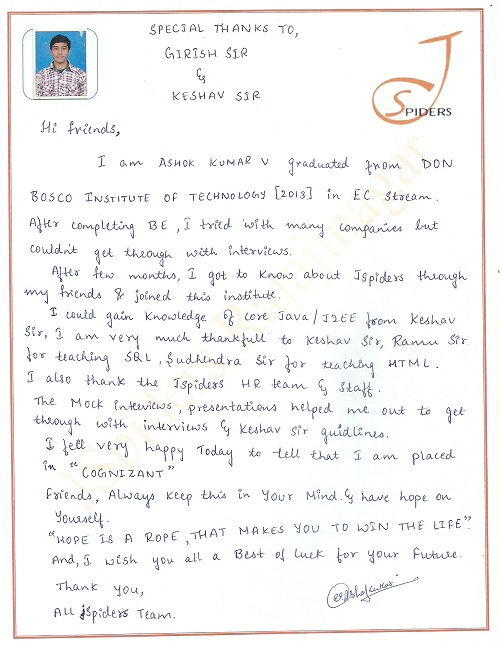 SPECIAL THANKS TO,
GIRISH SIR
&
KESHAV SIR
JSPIDERS
Hi friends,
I am ASHOK KUMAR V graduated from DON
BOSCO INSTITUTE OF TECHNOLOGY [2013] in EC Stream.
After completing BE, I tried with many companies but
couldn't get through with interviews.
After few months, I got to know about Jspiders through
my friends & joined this institute.
I could gain knowledge of core Java/J2EE from Keshav
Sir, I am very much thankfull to Keshav Sir, Ramu Sir
for teaching SQL, Sudhendra Sir for teaching HTML.
I also thank the Jspiders HR team & Staff.
The Mock interviews, presentations helped me out to get
through with interviews & Keshav Sir guidlines.
I fell very happy Today to tell that I am placed
in "COGNIZANT"
Friends, Always keep this in Your Mind. & have hope on
Yourself.
"HOPE IS A ROPE, THAT MAKES YOU TO WIN THE LIFE".
And, I wish you all a Best of luck for your Future.
Thank you,
All jSpider's Team.